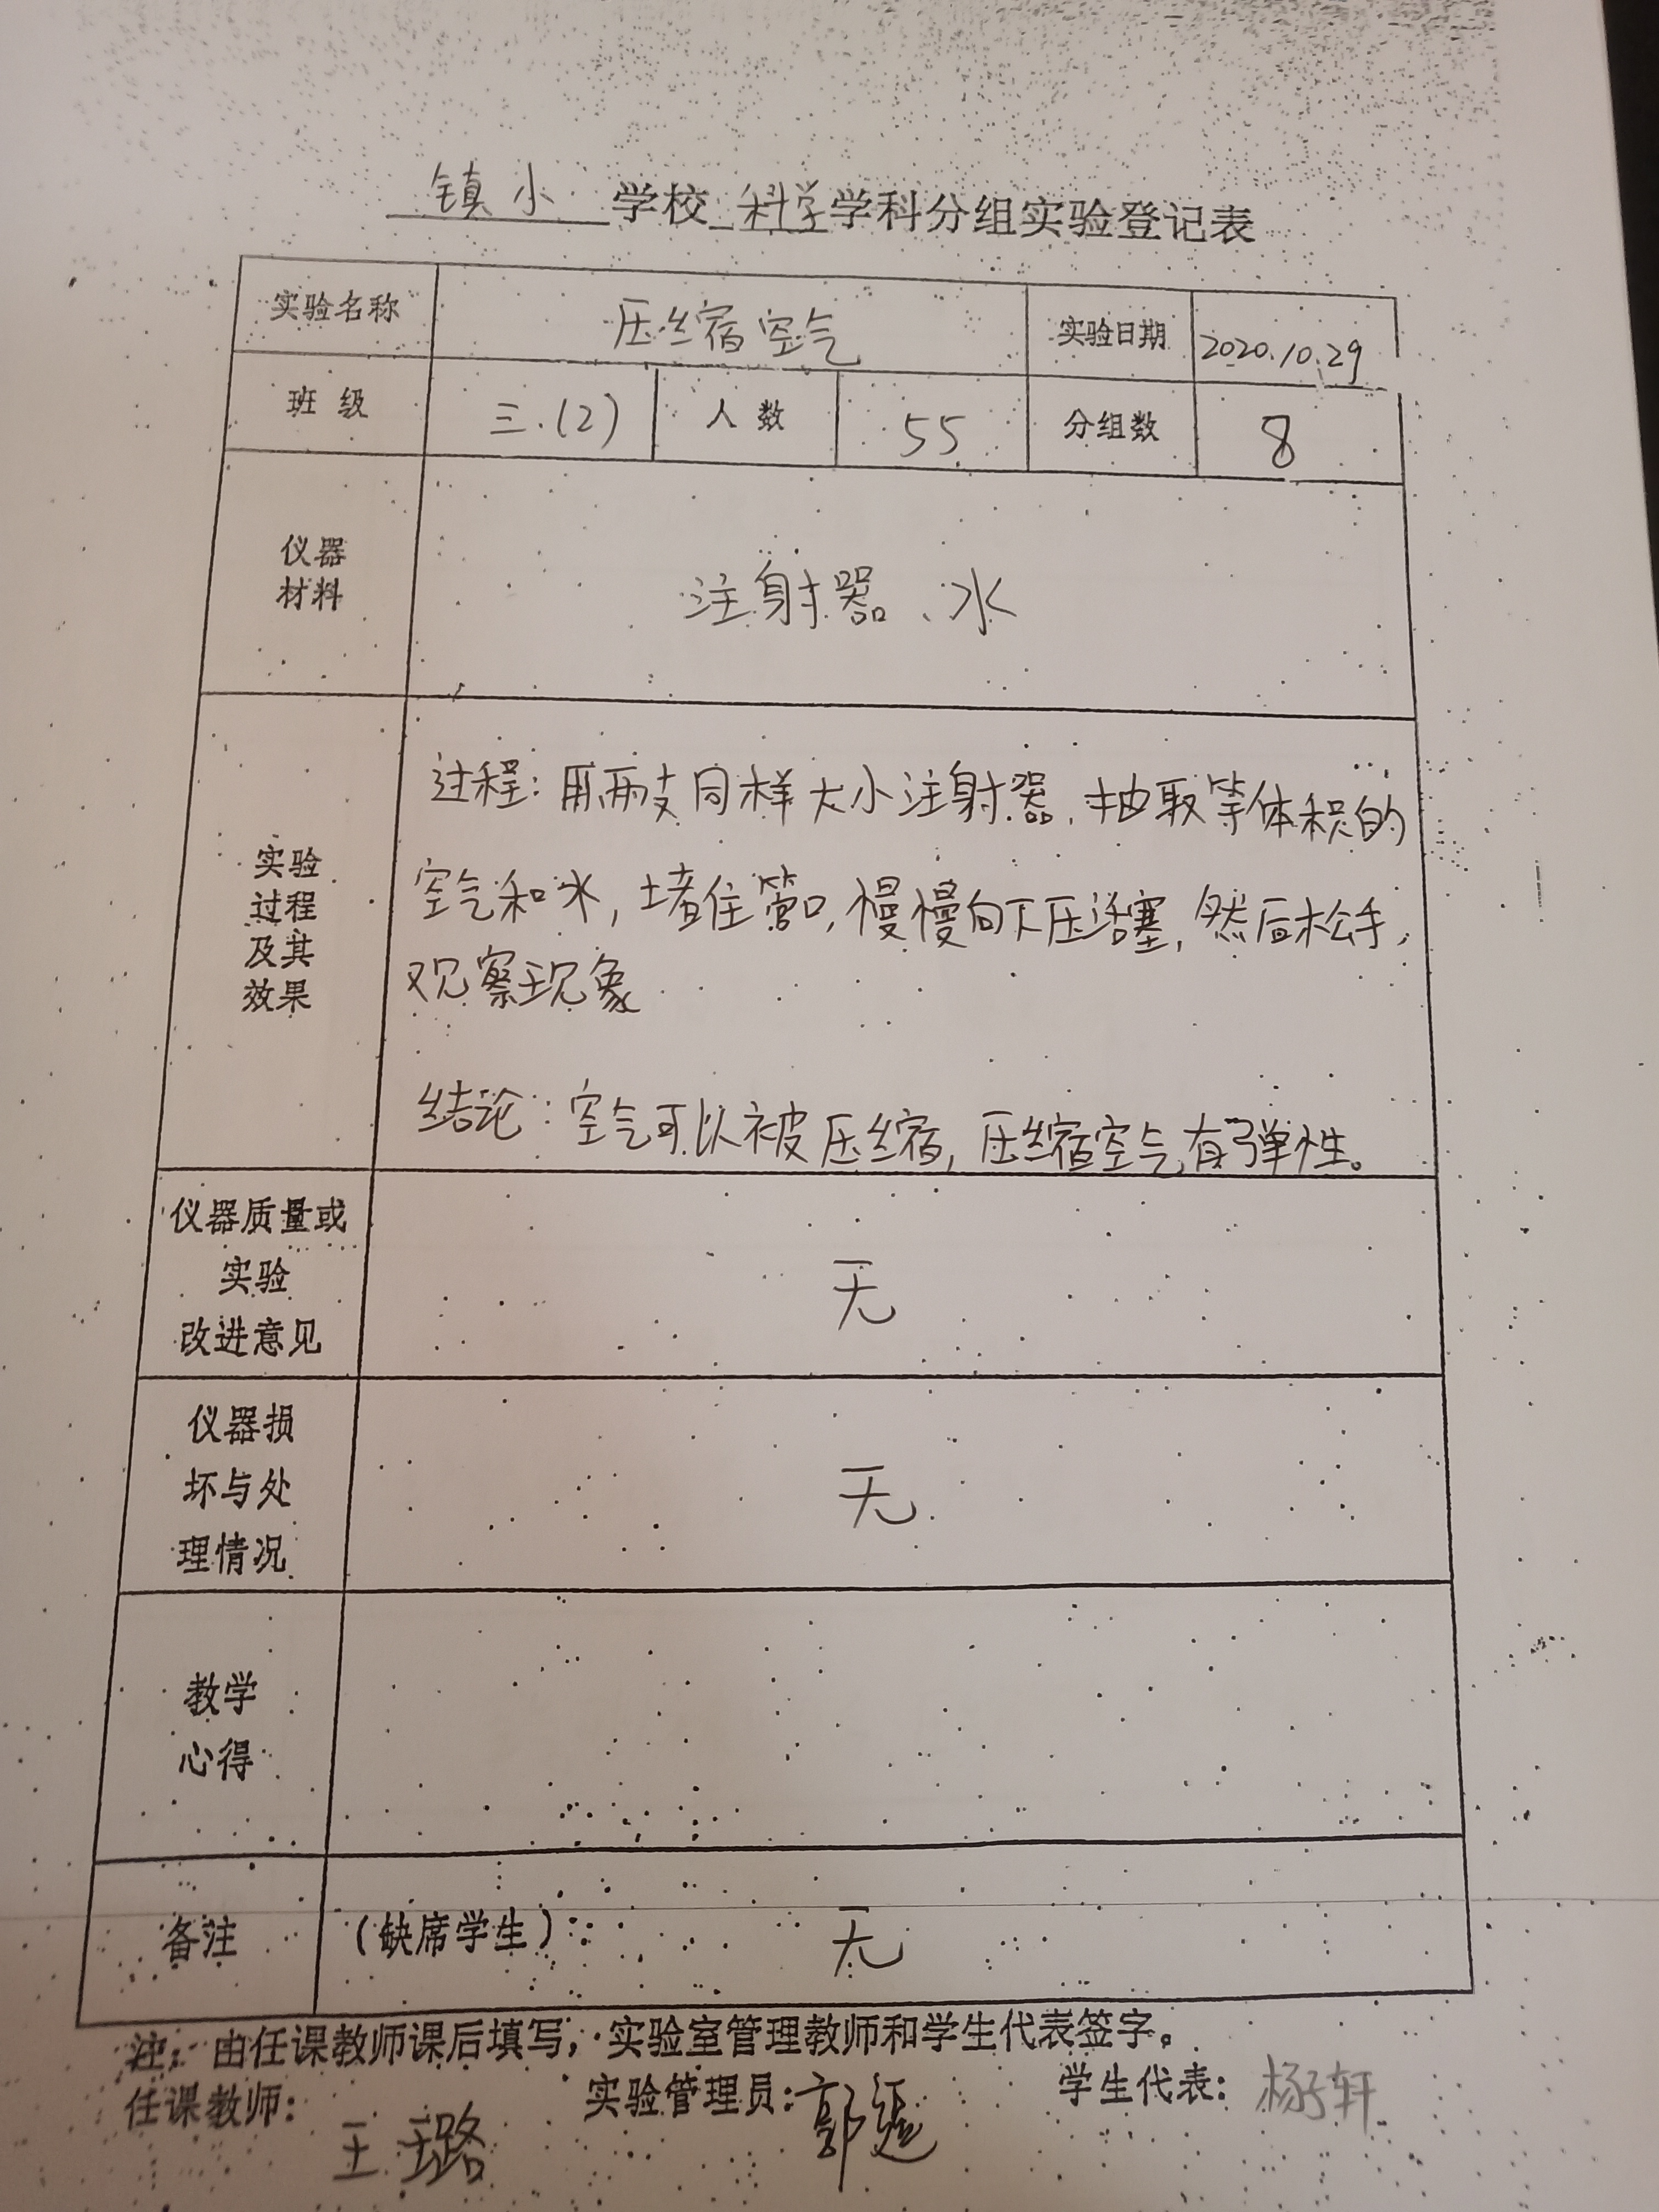 镇小 学校 科学 学科分组实验登记表
实验名称 压缩空气 实验日期 2020.10.29
班级 三.(2) 人数 55 分组数 8
仪器
材料
注射器、水
实验
过程
及其
效果
过程：用两支同样大小注射器，抽取等体积的
空气和水，堵住管口，慢慢向下压活塞，然后松手，
观察现象
结论：空气可以被压缩，压缩空气有弹性。
仪器质量或
实验
改进意见
无
仪器损
坏与处
理情况
无
教学
心得
备注 (缺席学生)： 无
注：由任课教师课后填写，实验室管理教师和学生代表签字。
任课教师： 实验管理员： 学生代表：
王璐 郭 杨子轩